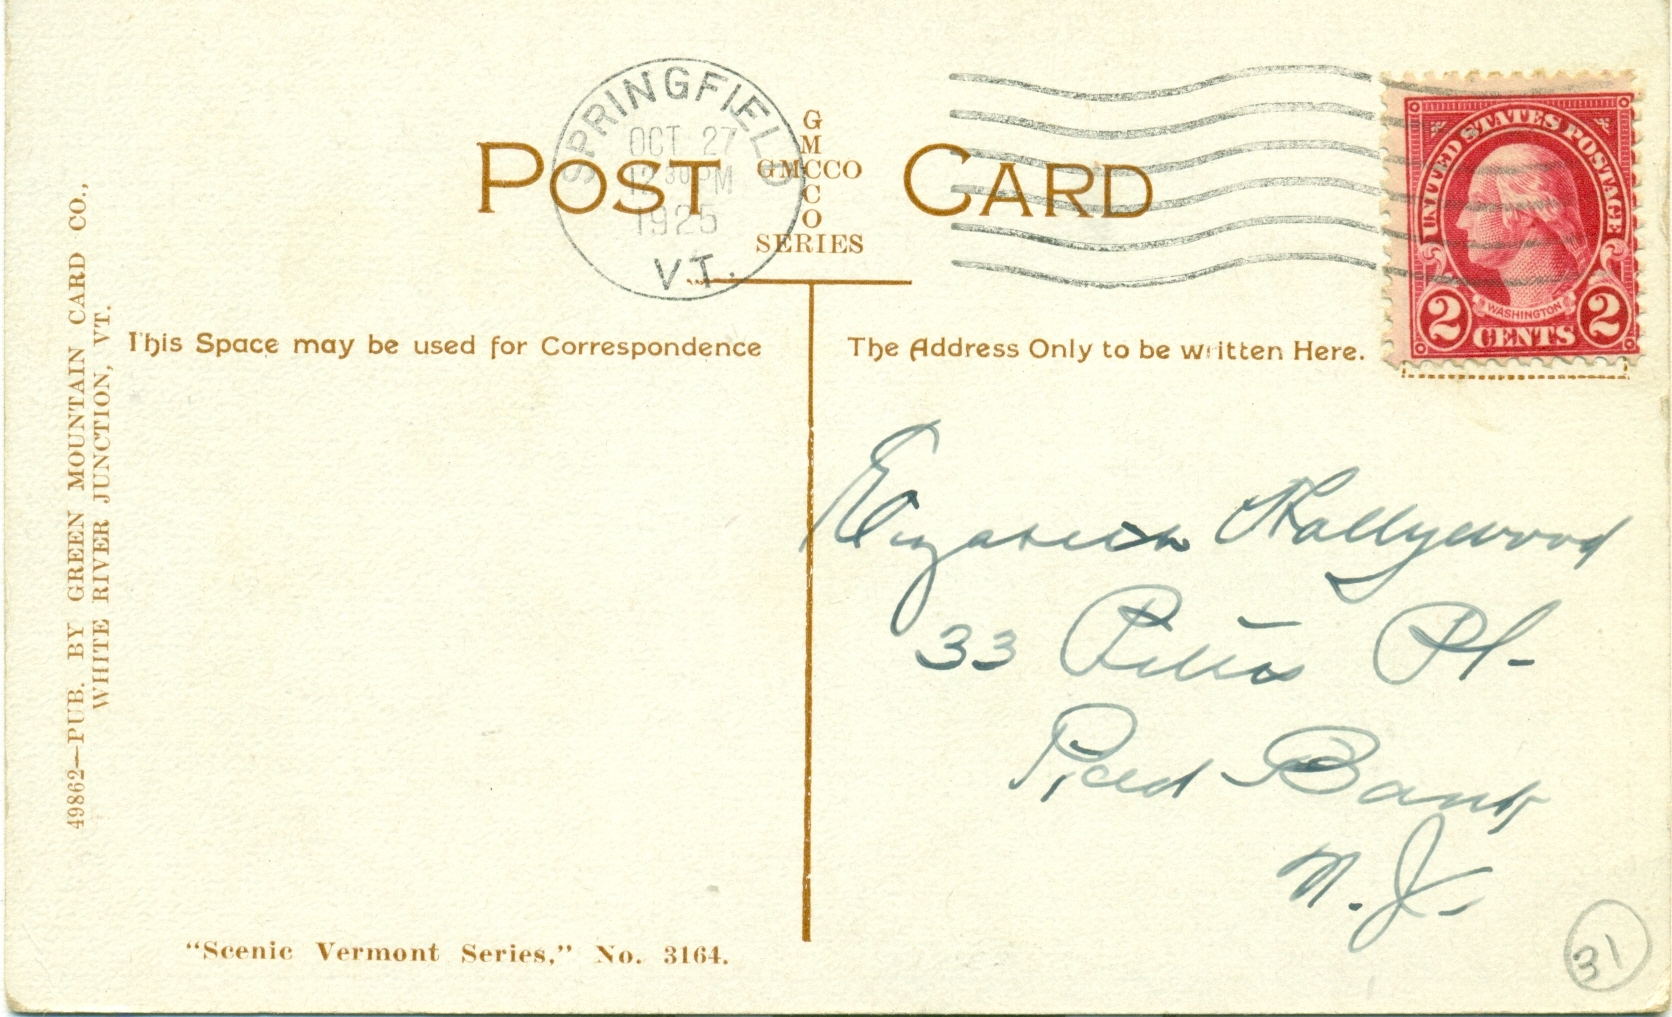 SPRINGFIELD
OCT 27
12 30 PM
1925
VT.
POST CARD
G
M
GMCCO
C
O
SERIES
UNITED STATES POSTAGE
WASHINGTON
2 CENTS 2
This Space may be used for Correspondence
The Address Only to be written Here.
Elizabeth Hollywood
33 Peters Pl.
Red Bank
N. J.
49862—PUB. BY GREEN MOUNTAIN CARD CO.,
WHITE RIVER JUNCTION, VT.
"Scenic Vermont Series," No. 3164.
31